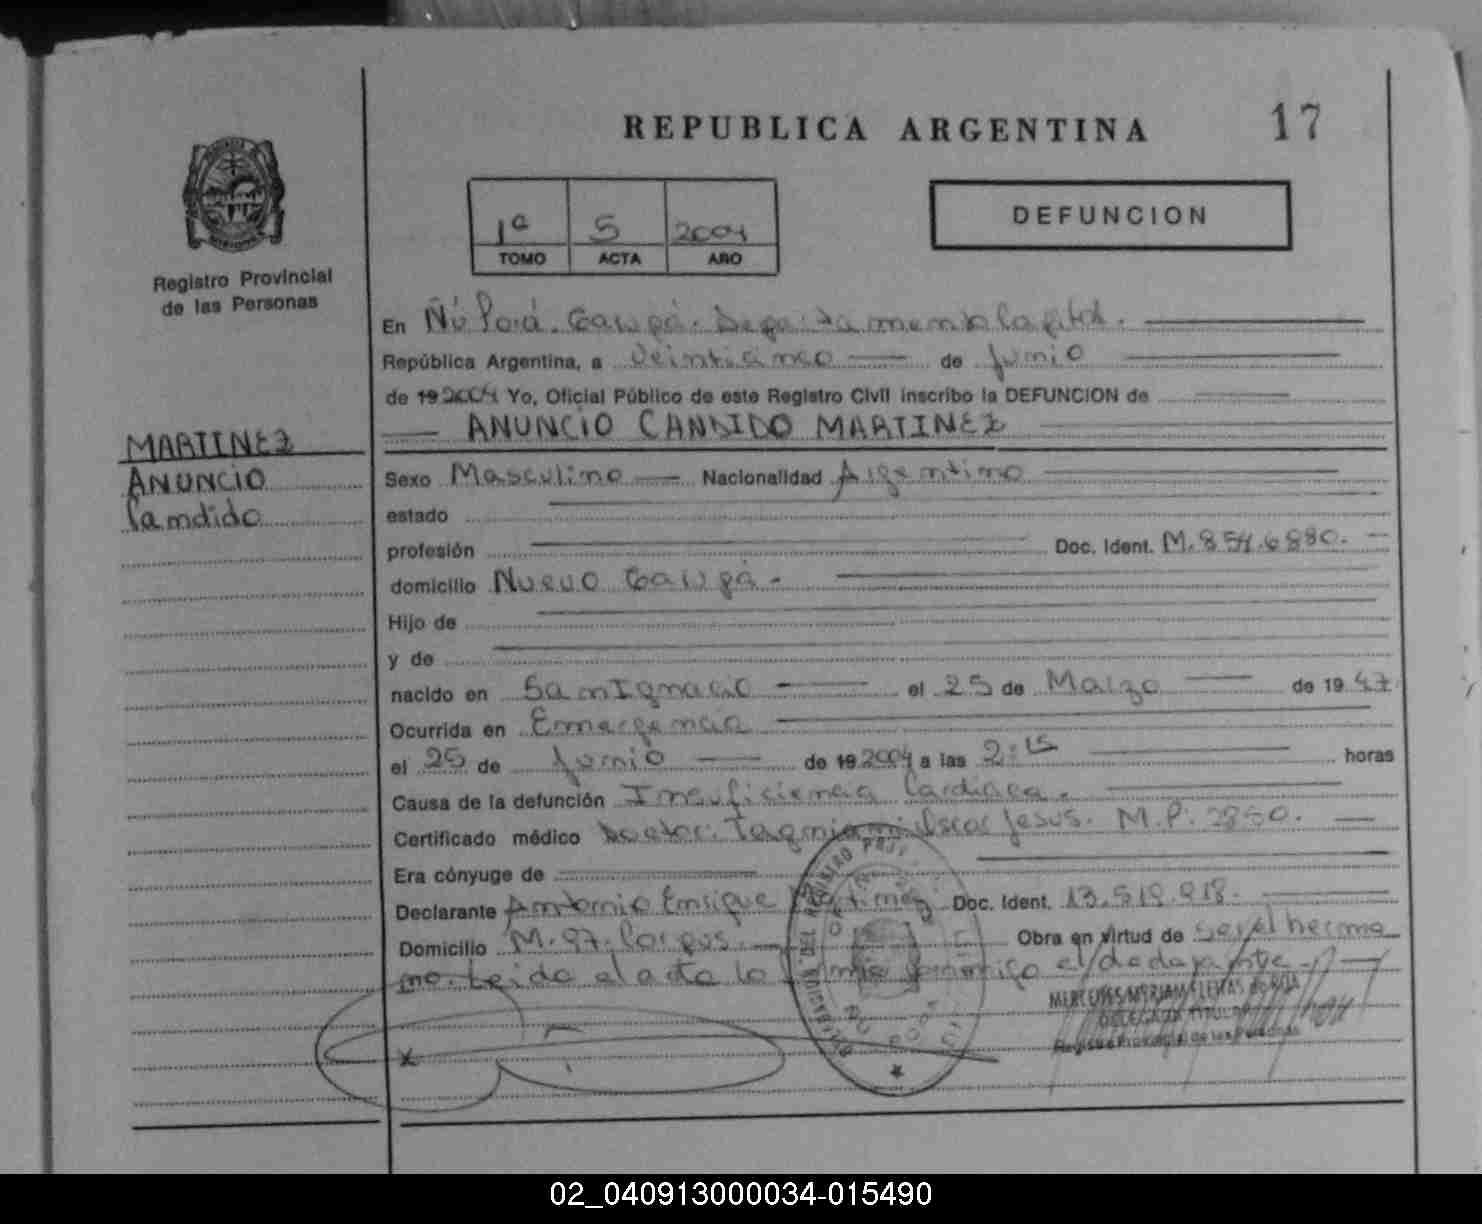 REPUBLICA ARGENTINA
17
1ª 5 2004
TOMO ACTA AÑO
DEFUNCION
Registro Provincial
de las Personas
En Ñú Porá. Garupá. Departamento Capital.
República Argentina, a Veinticinco de Junio
de 19 2004 Yo, Oficial Público de este Registro Civil inscribo la DEFUNCION de
ANUNCIO CANDIDO MARTINEZ
MARTINEZ
ANUNCIO
Candido
Sexo Masculino Nacionalidad Argentino
estado
profesión Doc. Ident. M. 854.6880.
domicilio Nuevo Garupá.
Hijo de
y de
nacido en San Ignacio el 25 de Marzo de 19 47
Ocurrida en Emergencia
el 25 de Junio de 19 2004 a las 2:15 horas
Causa de la defunción Insuficiencia Cardiaca.
Certificado médico Doctor: Oscar Jesus. M.P.
Era cónyuge de
Declarante Antonio Enrique Martinez Doc. Ident. 13.519.918.
Domicilio M. 97. Corpus. Obra en virtud de ser el herma
no. Leido el acta la firma conmigo el declarante.
x
MERCEDES MYRIAM de
DELEGADA TITULAR
Registro Provincial de las Personas
02_040913000034-015490